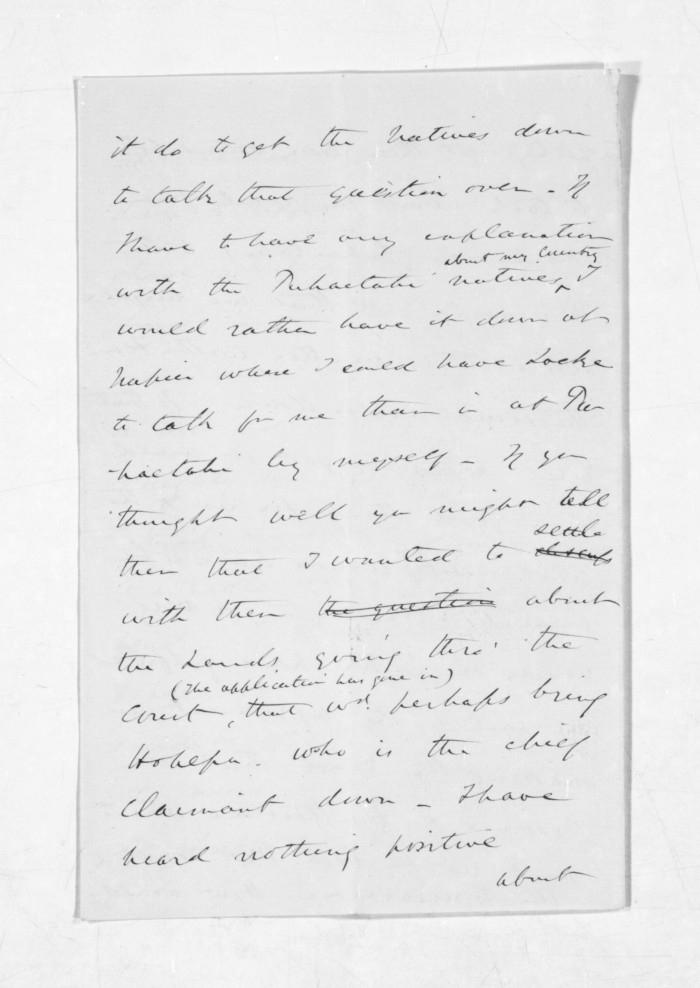 it do to get the Natives down
to talk that question over - If
I have to have any explanation
about my Country
with the Puhaetahi natives, I
would rather have it down at
Napier where I could have Locke
to talk for me than in at Pu
haetahi by myself - If you
thought well you might tell
settle
them that I wanted to
with them the question about
the Lands going thro' the
(The application has gone in)
Court, that wd. perhaps bring
Hohepa. who is the chief
Claimant down - I have
heard nothing positive
about